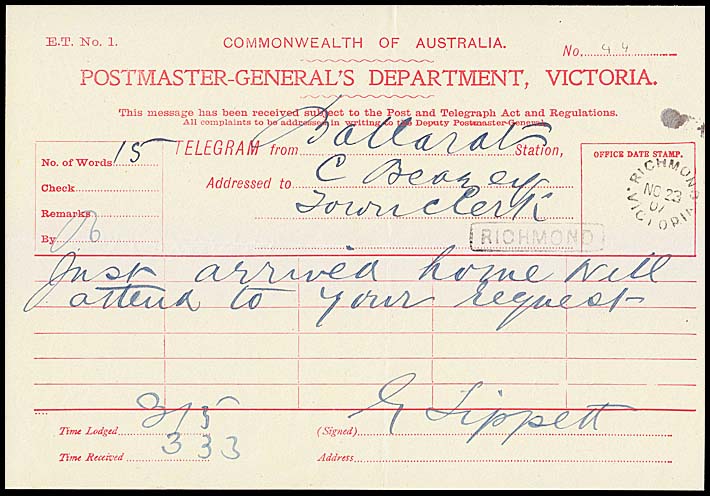 E.T. No. 1.
COMMONWEALTH OF AUSTRALIA.
No. 44
POSTMASTER-GENERAL'S DEPARTMENT, VICTORIA.
This message has been received subject to the Post and Telegraph Act and Regulations.
All complaints to be addressed in writing to the Deputy Postmaster-General.
No. of Words 15
TELEGRAM from Ballarat Station,
OFFICE DATE STAMP.
Check
Addressed to C Beazey
Remarks
Town Clerk
By
RICHMOND VICTORIA
NO 23
01
RICHMOND
Just arrived home will
attend to your request
Time Lodged 3/5
(Signed) G Lippett
Time Received 333
Address